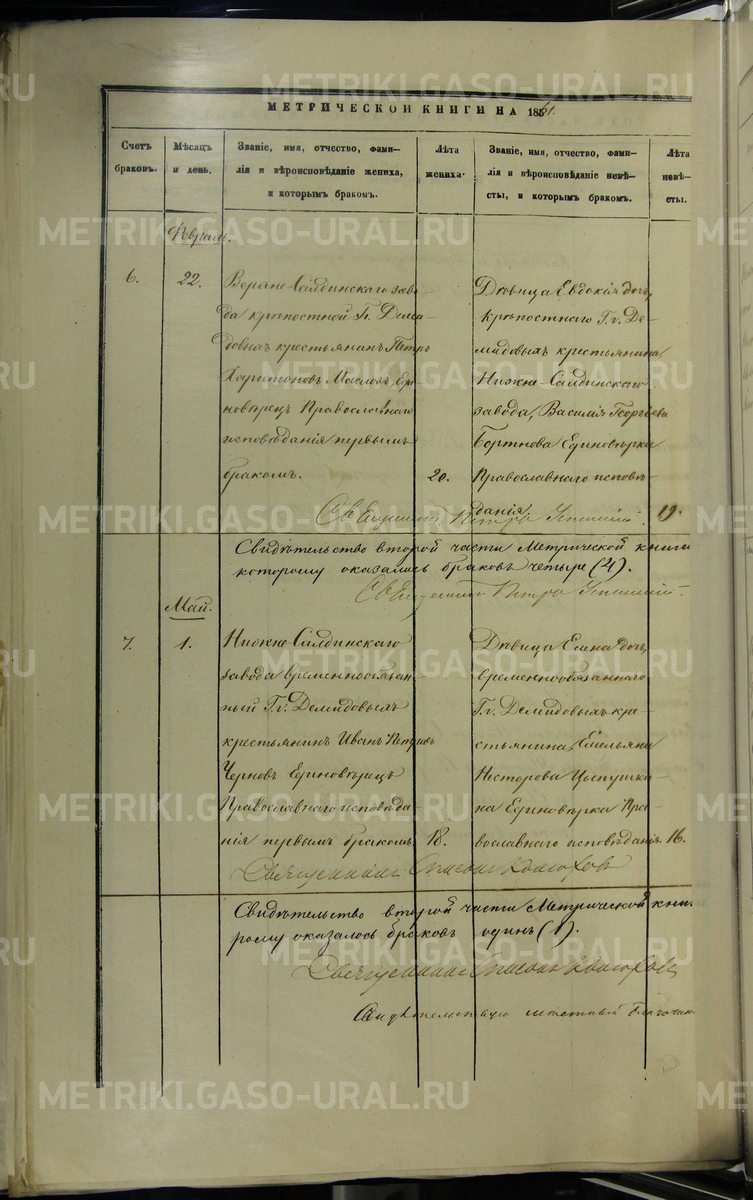 МЕТРИЧЕСКОЙ КНИГИ НА 1861.
Счетъ
браковъ.
Мѣсяцъ
и день.
Званіе, имя, отчество, фами-
лія и вѣроисповѣданіе жениха,
и которымъ бракомъ.
Лѣта
жениха.
Званіе, имя, отчество, фами-
лія и вѣроисповѣданіе невѣ-
сты, и которымъ бракомъ.
Лѣта
невѣ-
сты.
Февраль.
6.
22.
Верхне-Салдинскаго заво-
да крѣпостной Гг. Деми-
довыхъ крестьянинъ Петръ
Харитоновъ Масловъ, Еди-
новѣрецъ Православнаго
исповѣданія первымъ
бракомъ.
20.
Дѣвица Евдокія дочь
крѣпостнаго Г.г. Де-
мидовыхъ крестьянина
Нижне-Салдинскаго
завода, Василія Георгіева
Бортнова Единовѣрка
Православнаго исповѣ-
данія.
19.
Священникъ Петръ
Свидѣтельство второй части Метрической книги
которому оказалось браковъ четыре (4).
Священникъ Петръ
Май.
7.
1.
Нижне-Салдинскаго
завода временнообязан-
ный Г.г. Демидовыхъ
крестьянинъ Иванъ Петровъ
Черновъ Единовѣрецъ
Православнаго исповѣда-
нія первымъ бракомъ.
18.
Дѣвица Елена дочь
временнообязаннаго
Г.г. Демидовыхъ кре-
стьянина, Емельяна
Нестерова
на Единовѣрка Пра-
вославнаго исповѣданія.
16.
Священникъ
Свидѣтельство второй части Метрической кни
рому оказалось браковъ одинъ (1).
Священникъ
Свидѣтельствую мѣстный Благочин
METRIKI.GASO-URAL.RU